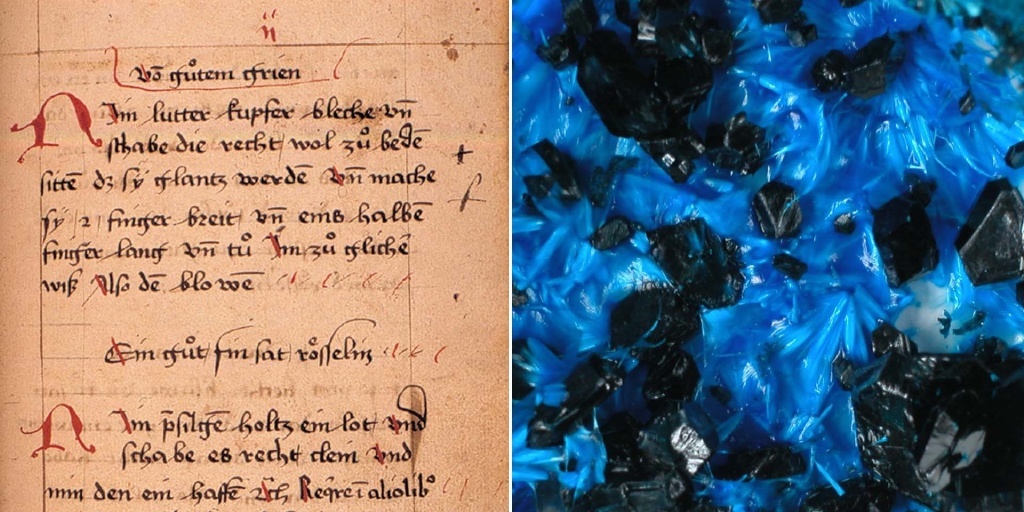 ii
võ gůtem grien
Nim lutter kupfer bleche vn̄
schabe die recht wol zů bedē
sittē dz sÿ glantz werdē vn̄ mache
sÿ 2 finger breit vn̄ eins halbē
finger lang vn̄ tů im zů glichē
wiß Also dē blowē
Ein gůt fin sat rösselin
Nim p̄silgē holtz ein lot vnd
schabe es recht clein vnd
nim den ein haffē